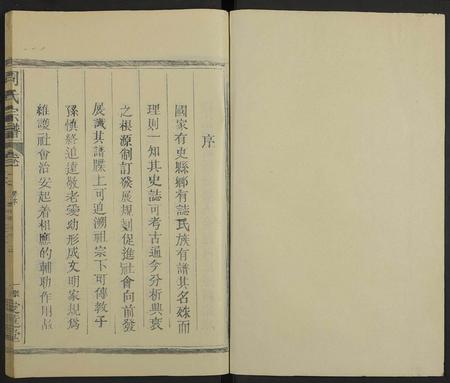 序
國家有史縣鄉有誌氏族有譜其名雖而
理則一知其史誌可考古通今分析興衰
之根源制訂發展規划促進社會向前發
展識其譜牒上可追溯祖宗下可傳教子
孫慎終追遠敬老愛幼形成文明家規爲
維護社會治安起着相應的輔助作用故
周氏宗譜